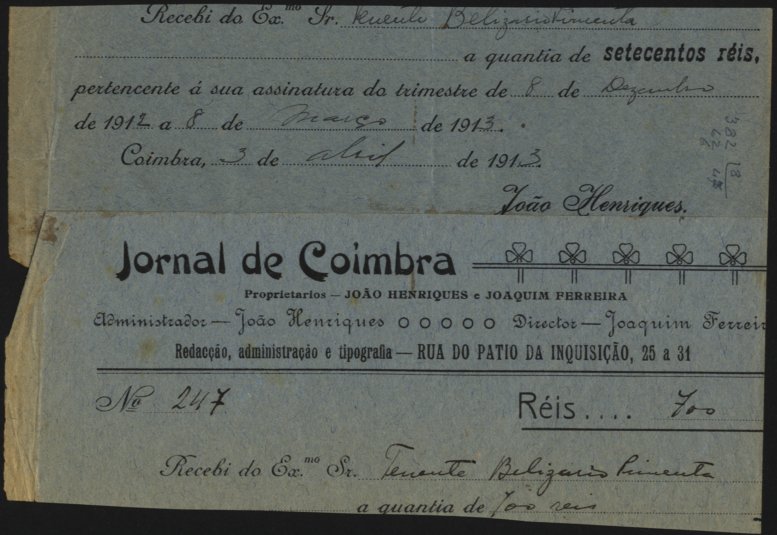 Recebi do Ex.mo Sr. Tenente Belizario Pimenta
a quantia de setecentos réis,
pertencente á sua assinatura do trimestre de 8 de Dezembro
de 1912 a 8 de Março de 1913.
Coimbra, 3 de abril de 1913.
João Henriques.
Jornal de Coimbra
Proprietarios — JOÃO HENRIQUES e JOAQUIM FERREIRA
Administrador — João Henriques Director — Joaquim Ferrei
Redacção, administração e tipografia — RUA DO PATIO DA INQUISIÇÃO, 25 a 31
Nº 247 Réis.... 700
Recebi do Ex.mo Sr. Tenente Belizario Pimenta
a quantia de 700 reis